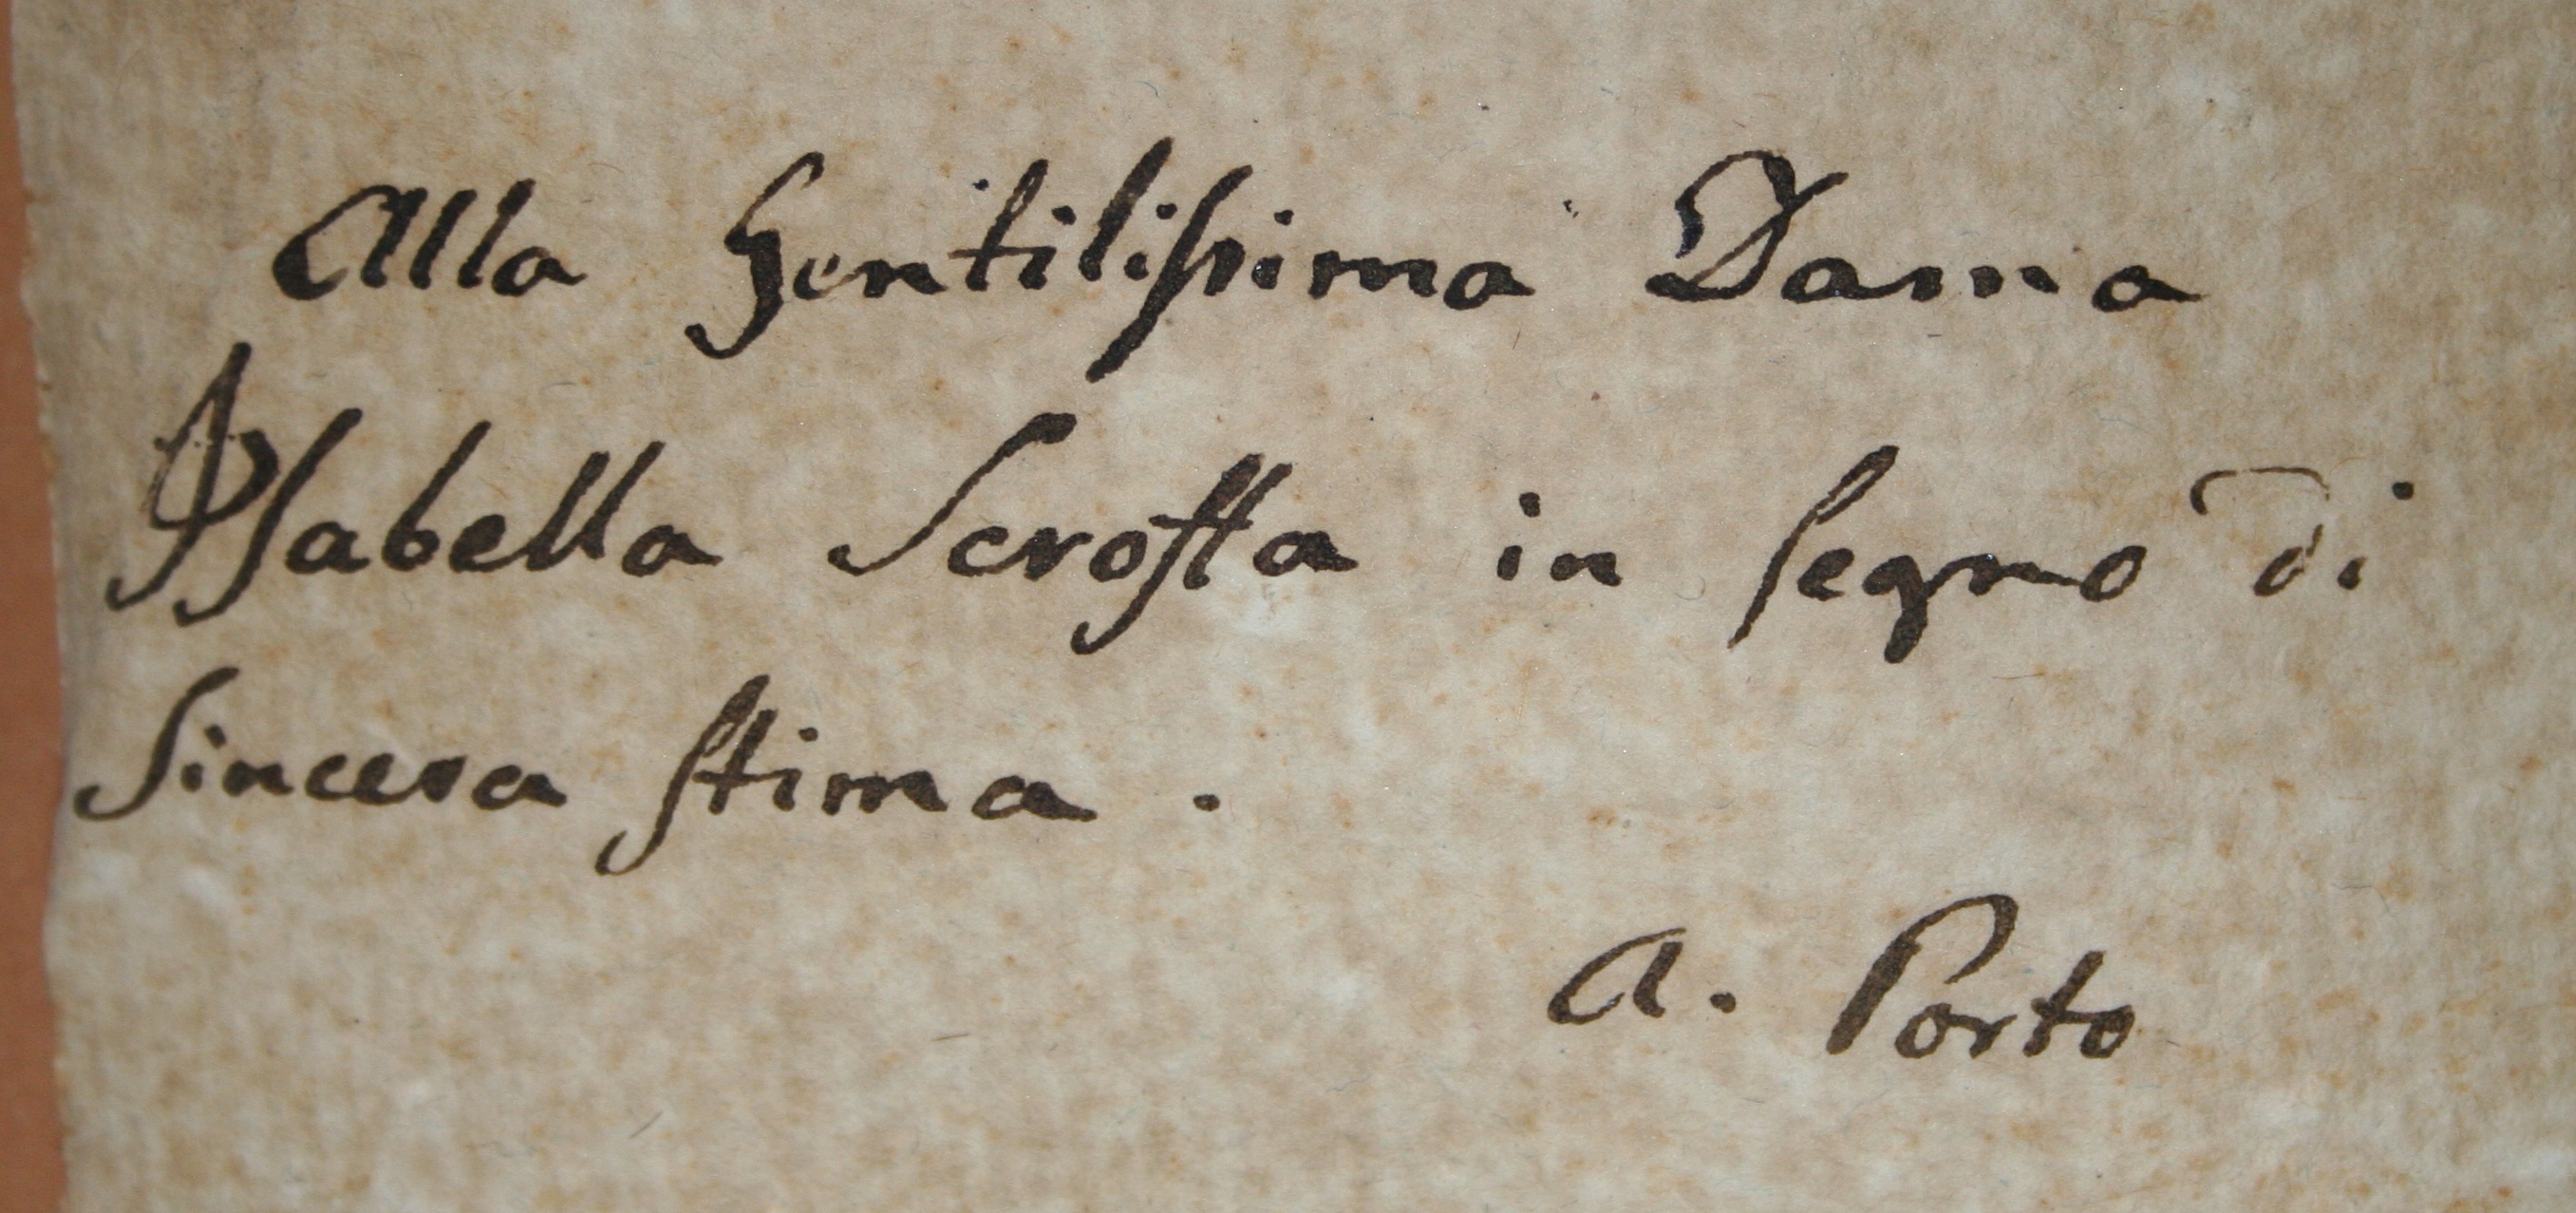 Alla Gentiliſsima Dama
Iſabella Scroffa in ſegno di
Sincera ſtima .
A. Porto